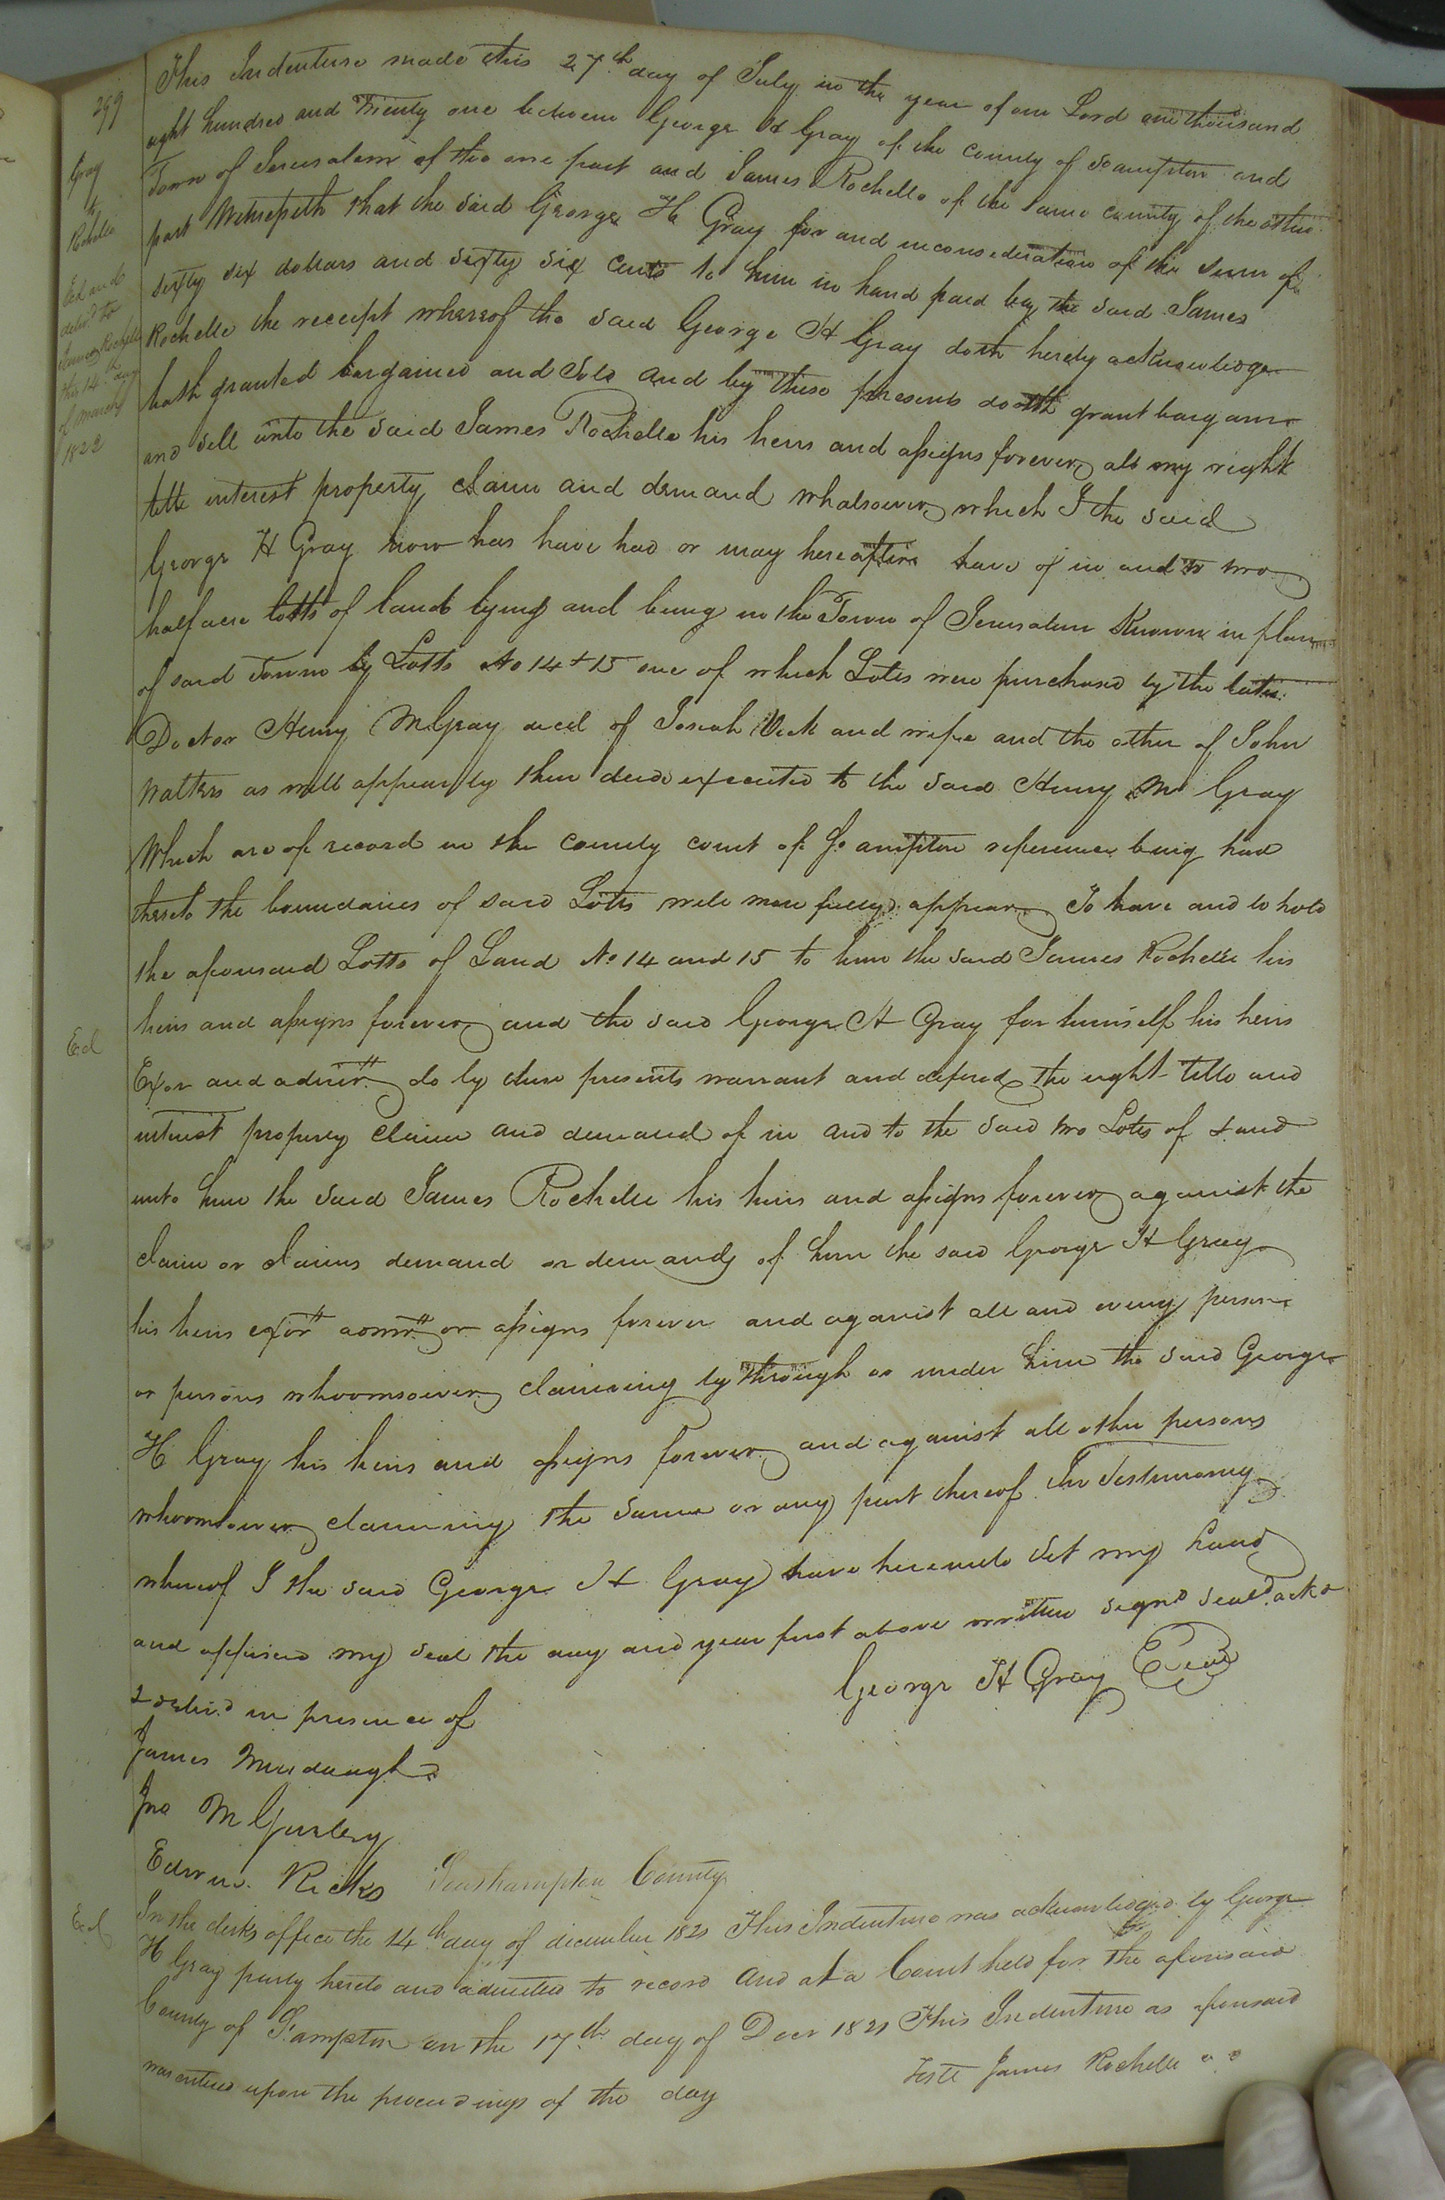 299
Gray
to
Rochelle
Exd and
delivd to
James Rochelle
this 14th day
of March
1822
This Indenture made this 27th day of July in the year of our Lord one thousand
eight hundred and Twenty one between George H Gray of the county of Soampton and
Town of Jerusalem of the one part and James Rochelle of the same county of the other
part Witnesseth that the said George H Gray for and in consideration of the sum of
sixty six dollars and sixty six cents to him in hand paid by the said James
Rochelle the receipt whereof the said George H Gray doth hereby acknowledge
hath granted bargained and Sold and by these presents doth grant bargain
and sell unto the said James Rochelle his heirs and assigns forever all my right
title interest property claim and demand whatsoever which I the said
George H Gray now has have had or may hereafter have of in and to two
half acre lotts of land lying and being in the Town of Jerusalem Known in plan
of said Town by Lotts No 14 + 15 one of which Lotts were purchased by the late
Doctor Henry M Gray decd of Josiah Vick and wife and the other of John
Walters as will appear by their deeds executed to the said Henry M Gray
Which are of record in the county court of So ampton reference being had
thereto the boundaries of said Lotts will more fully appear To have and to hold
the aforesaid Lotts of Land No 14 and 15 to him the said James Rochelle his
heirs and assigns forever and the said George H Gray for himself his heirs
Exd
Exor and admrs do by these presents warrant and defend the right title and
interest property claim and demand of in and to the said two Lotts of Land
unto him the said James Rochelle his heirs and assigns forever against the
claim or claims demand or demands of him the said George H Gray
his heirs exors admrs or assigns forever and against all and every person
or persons whoomsoever claiming by through or under him the said George
H Gray his heirs and assigns forever and against all other persons
whoomsoever claiming the same or any part thereof In Testimony
whereof I the said George H Gray have hereunto set my hand
and affixed my seal the day and year first above written signd seald ackd
& delivd in presence of
George H Gray Seal
James Murdaugh
Jno M Gurley
Edwin Ricks
Southampton County
Exd
In the clerks office the 14th day of december 1821 This Indenture was acknowledged by George
H Gray party hereto and admitted to record And at a Court held for the aforesaid
County of S.ampton on the 17th day of Decr 1821 This Indenture as aforesaid
was entered upon the proceedings of the day
Teste James Rochelle